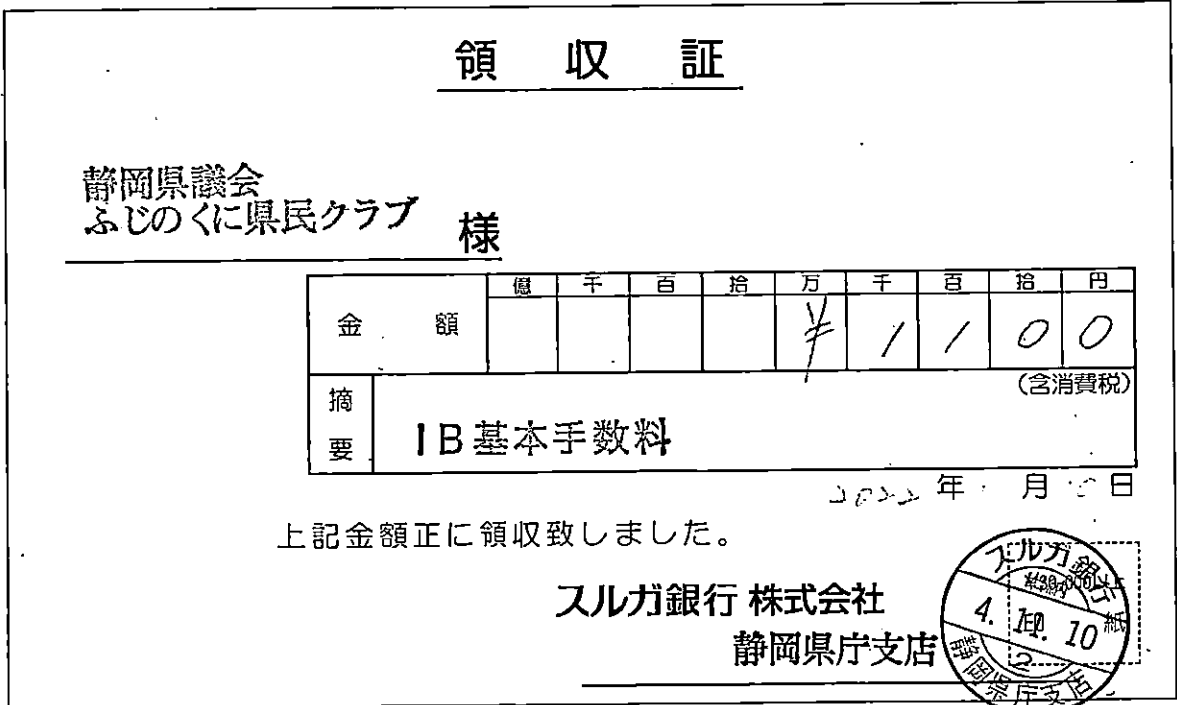 領収証
静岡県議会
ふじのくに県民クラブ 様
億 千 百 拾 万 千 百 拾 円
金額 ¥1100
(含消費税)
摘要 IB基本手数料
2022年 月 日
上記金額正に領収致しました。
スルガ銀行 株式会社
静岡県庁支店
スルガ銀行
4. 10
2
静岡県庁支店